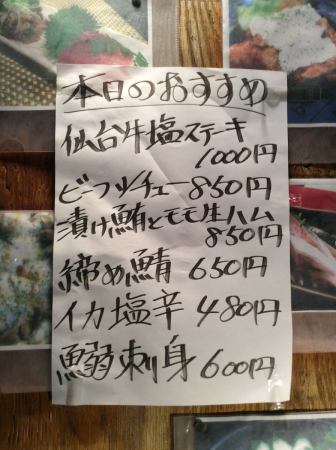 本日のおすすめ
仙台牛塩ステーキ
1000円
ビーフシチュー850円
漬け鮪とモモ生ハム
850円
締め鯖 650円
イカ塩辛 480円
鰯刺身 600円